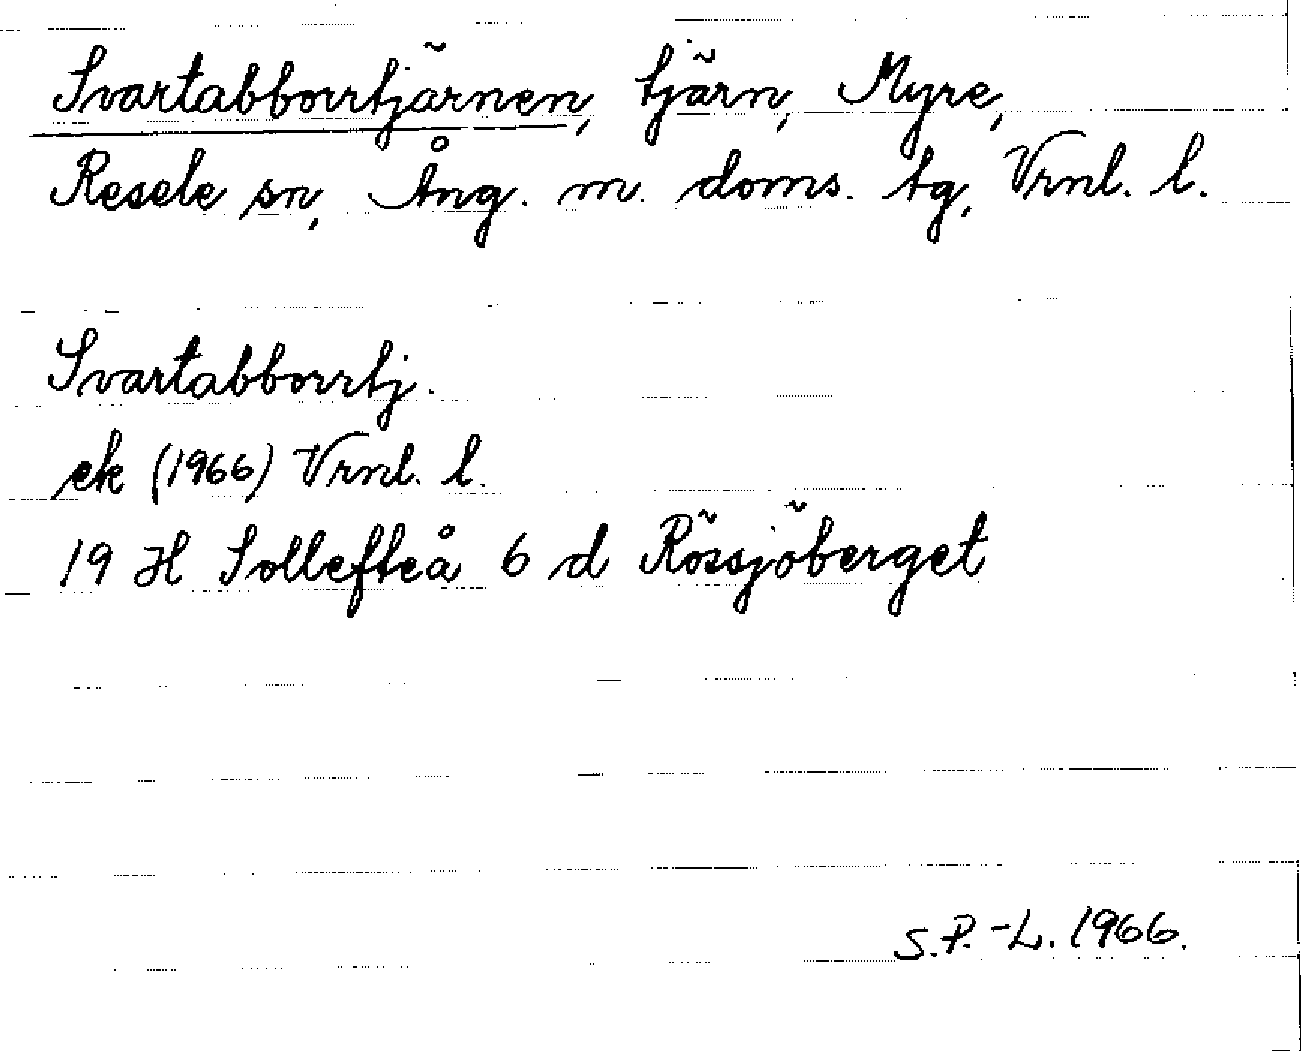 Svartabborrtjärnen, tjärn, Myre,
Resele sn, Ång. m. doms. tg, Vrnl. l.
Svartabborrtj.
ek (1966) Vrnl. l.
19 H Sollefteå 6 d Rössjöberget
S.P.-L. 1966.